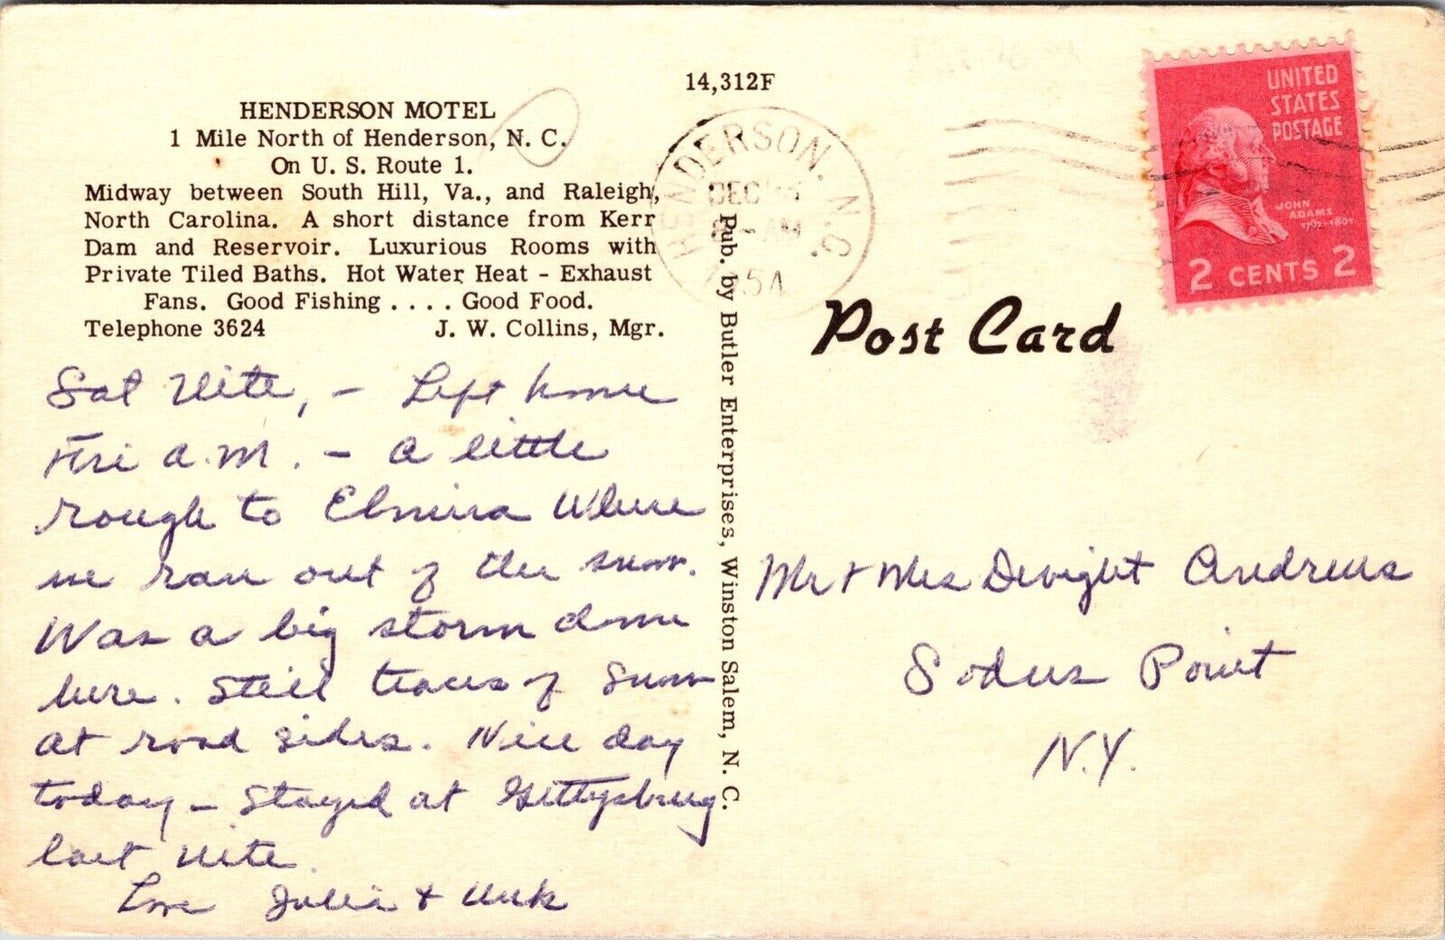 14,312F
HENDERSON MOTEL
1 Mile North of Henderson, N. C.
On U. S. Route 1.
Midway between South Hill, Va., and Raleigh,
North Carolina. A short distance from Kerr
Dam and Reservoir. Luxurious Rooms with
Private Tiled Baths. Hot Water Heat - Exhaust
Fans. Good Fishing . . . . Good Food.
Telephone 3624 J. W. Collins, Mgr.
Sat Nite, - Left home
Fri A.M. - A little
rough to Elmira Where
we ran out of the snow.
Was a big storm down
here. Still traces of Snow
at road sides. Nice day
today - Stayed at Gettysburg
last nite.
Love Julia &
Pub. by Butler Enterprises, Winston Salem, N. C.
HENDERSON, N.C.
DEC
AM
1954
UNITED
STATES
POSTAGE
JOHN
ADAMS
1797-1801
2 CENTS 2
Post Card
Mr + Mrs Dwight Andrews
Sodus Point
N.Y.